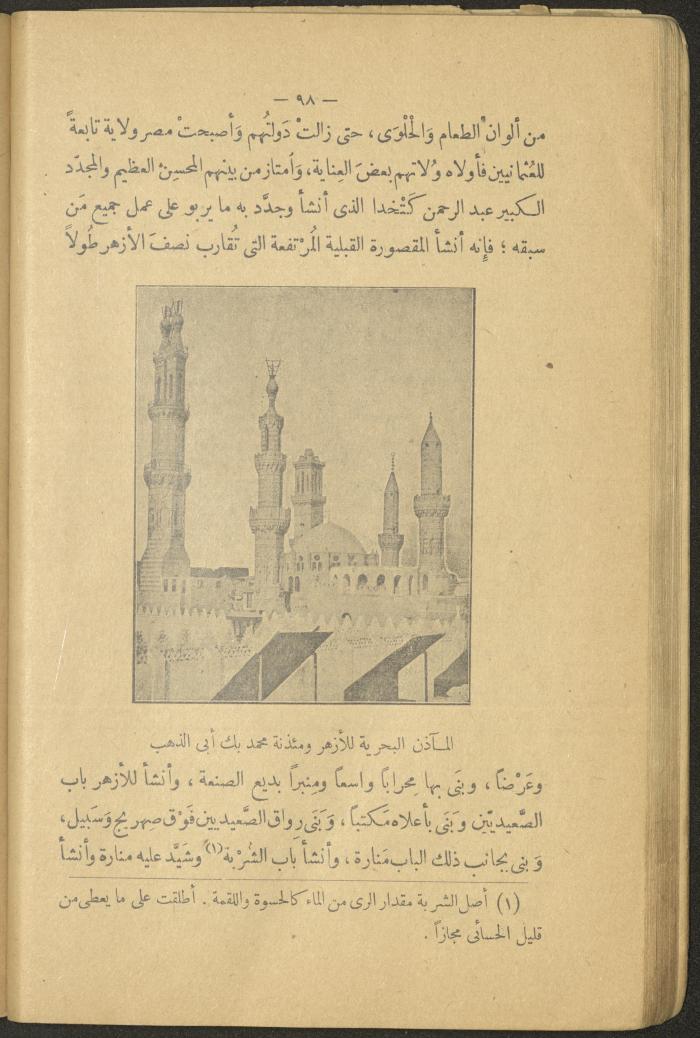 — ٩٨ —
من ألوان الطعام وَالْحَلْوَى ، حتى زالتْ دَولتُهم وَأصبحتْ مصر ولاية تابعةً
للعُثمانيين فأولاه وُلاتهم بعضَ العِناية، وَاُمتاز من بينهم المحسِنُ العظيم والمجدّد
الكبير عبد الرحمن كَتْخدا الذى أنشأ وجدَّد به ما يربو على عمل جميع مَن
سبقه ؛ فإِنه أنشأ المقصورة القبلية المُرْتفعة التى تُقارب نصفَ الأزهر طُولاً
المـآذن البحرية للأزهر ومئذنة محمد بك أبى الذهب
وعَرْضاً ، وبنَى بها مِحراباً واسعاً ومِنبراً بديع الصنعة ، وأنشأ للأزهر باب
الصَّعيديّين وبَنَى بأعلاه مَكتباً ، وَبَنَى رواق الصَّعيديين فَوْق صِهريج وَسَبيل،
وَبنى بجانب ذلك الباب مَنارة ، وأنشأ بابَ الشُرْبة (١) وشيَّد عليه منارة وأنشأ
(١) أصل الشربة مقدار الرى من الماء كالحسوة واللقمة . أطلقت على ما يعطى من
قليل الحسائى مجازاً .